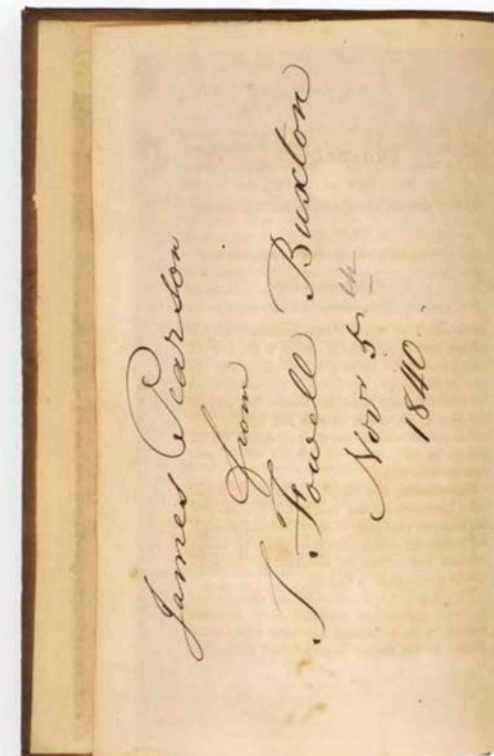 James Pearson
from
T Fowell Buxton
Nov 5th
1840.